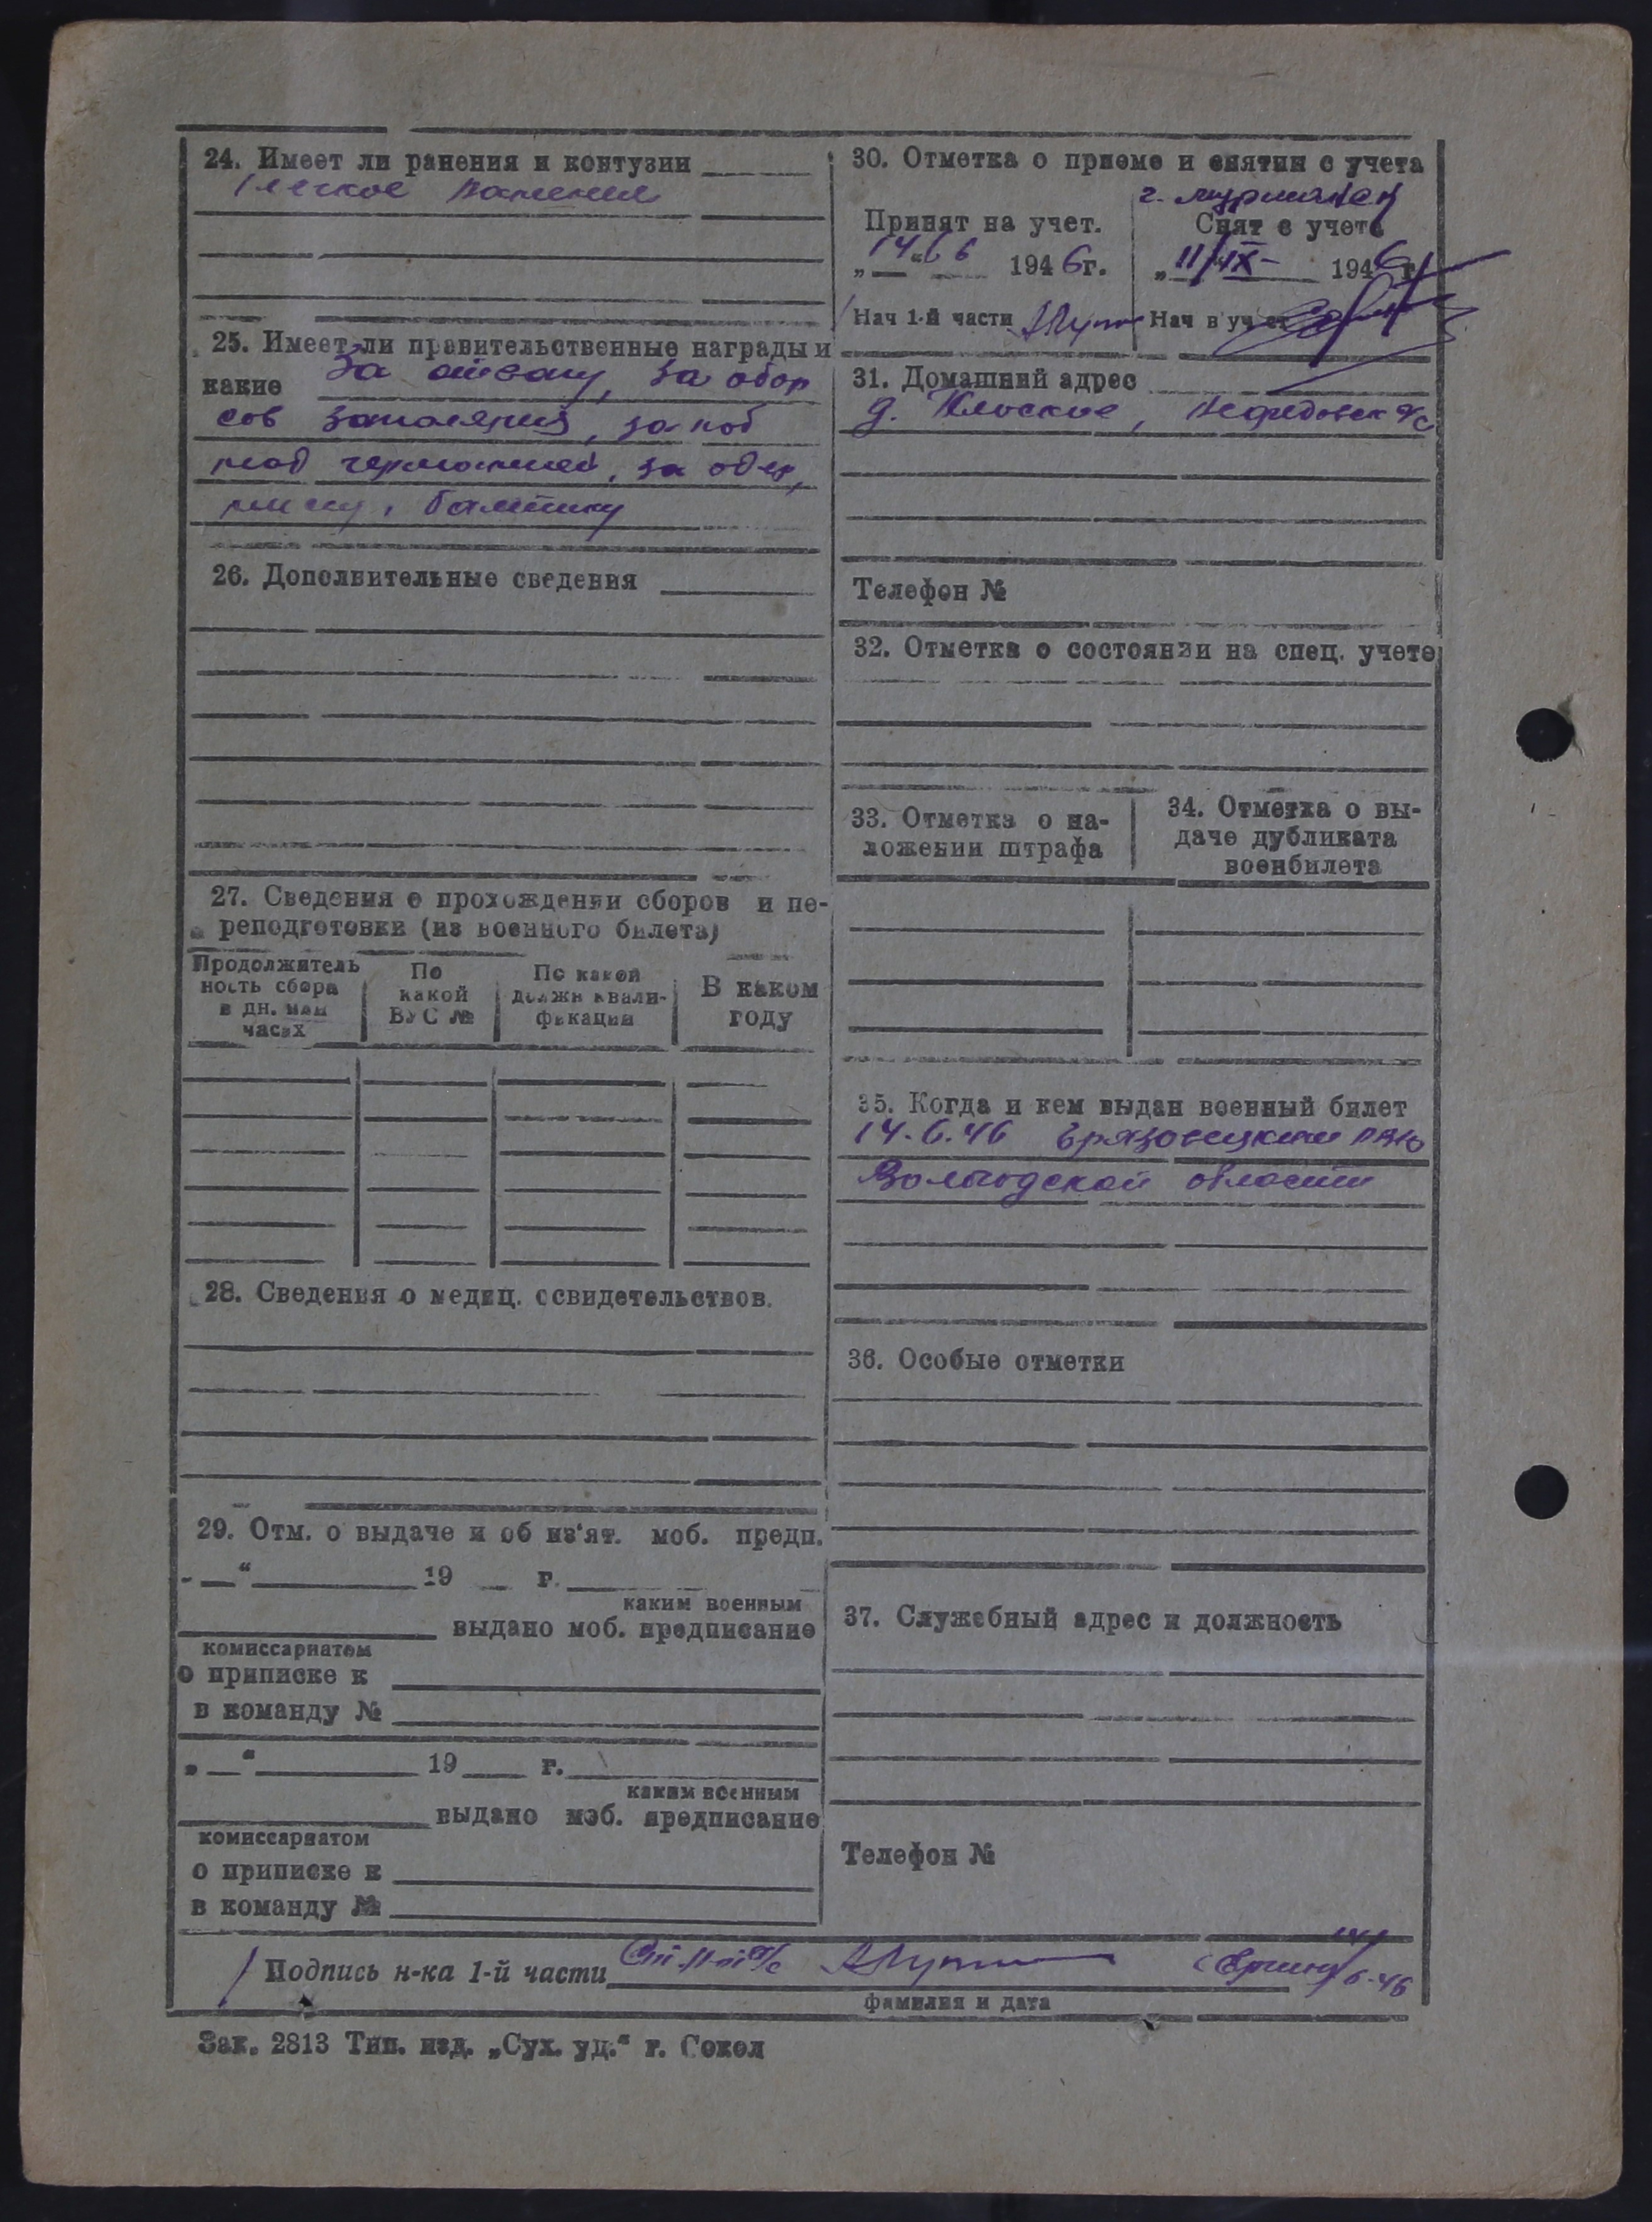 24. Имеет ли ранения и контузии
легкое ранение
25. Имеет ли правительственные награды и
какие За отвагу, за обор
сов заполярья, за поб
над германией, за
26. Дополнительные сведения
27. Сведения о прохождении сборов и пе-
реподготовки (из военного билета)
Продолжитель
ность сбора
в дн. или
часах
По
какой
ВУС №
По какой
должн квали-
фикации
В каком
году
28. Сведения о медиц. освидетельствов.
29. Отм. о выдаче и об из'ят. моб. предп.
„ — “ 19 г.
каким военным
выдано моб. предписание
комиссариатом
о приписке к
в команду №
„ — “ 19 г.
каким военным
выдано моб. предписание
комиссариатом
о приписке к
в команду №
30. Отметка о приеме и снятии с учета
Принят на учет.
„14“ 6 1946г.
Нач 1-й части
г. мурманск
Снят с учета
„11/IX- 1946г
Нач в уч
31. Домашний адрес
д.
Телефон №
32. Отметка о состоянии на спец. учете
33. Отметка о на-
ложении штрафа
34. Отметка о вы-
даче дубликата
военбилета
35. Когда и кем выдан военный билет
14.6.46 Грязовецким РВК
Вологодской области
36. Особые отметки
37. Служебный адрес и должность
Телефон №
Подпись н-ка 1-й части
фамилия и дата
Зак. 2813 Тип. изд. „Сух. уд.“ г. Сокол